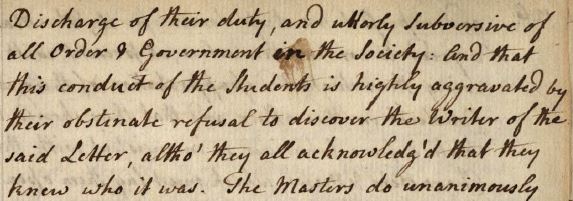 Discharge of their duty, and utterly subversive of
all Order & Government in the Society: And that
this conduct of the Students is highly aggravated by
their obstinate refusal to discover the Writer of the
said Letter, altho' they all acknowledg'd that they
knew who it was. The Masters do unanimously